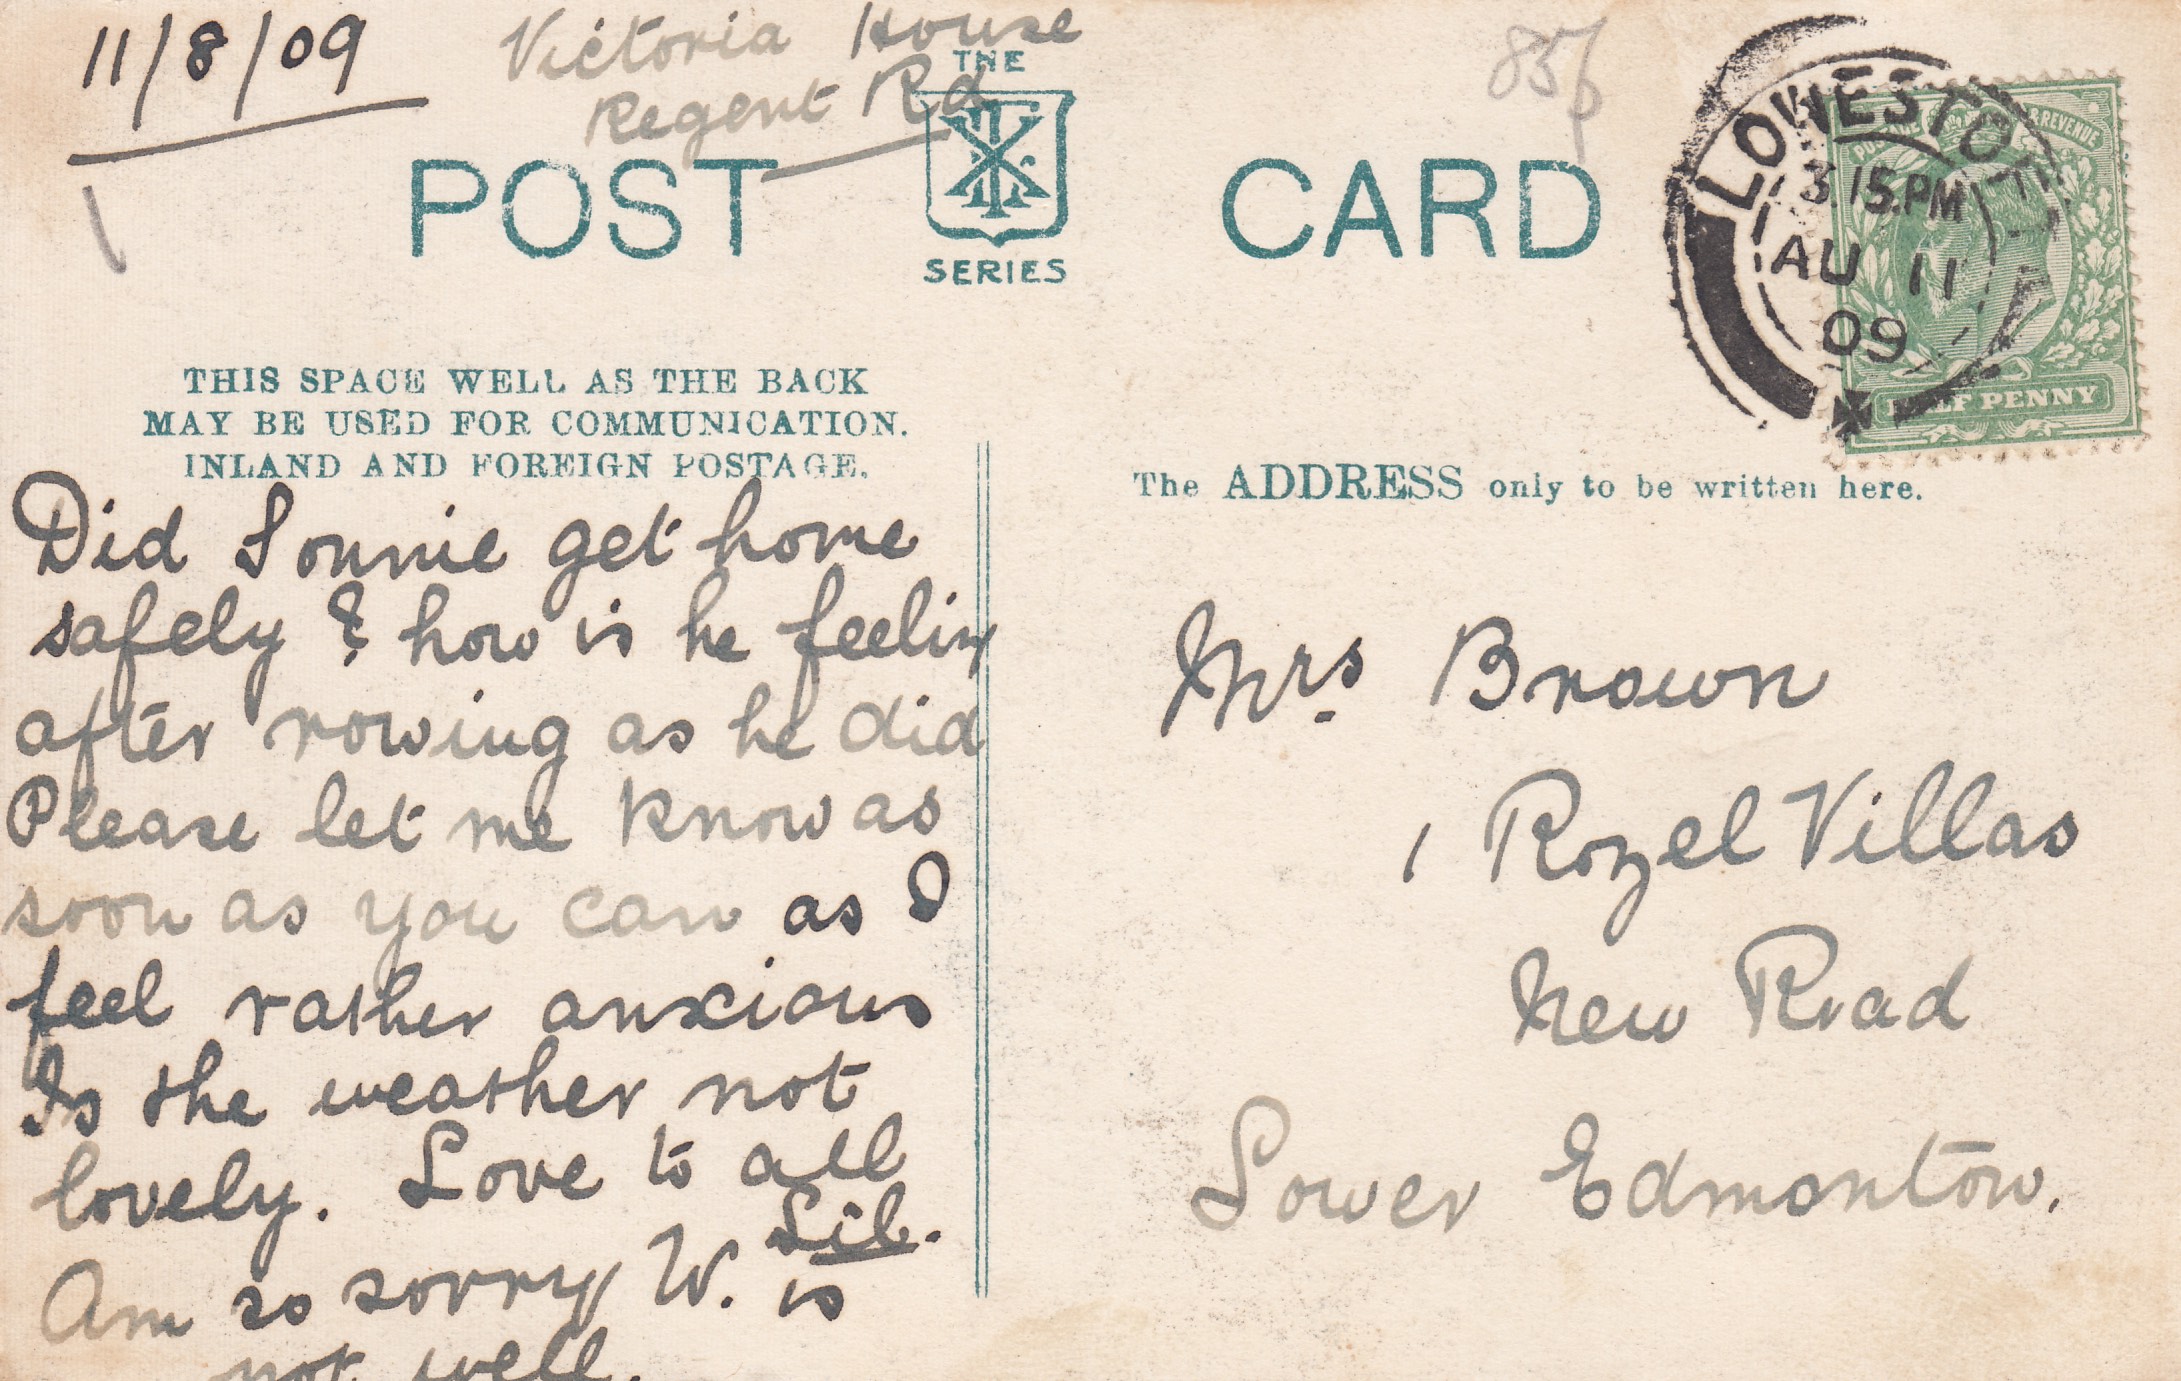 11/8/09
Victoria House
Regent Rd
85p
THE
SERIES
POST CARD
LOWESTOFT
3.15.PM
AU 11
09
POSTAGE & REVENUE
HALF PENNY
THIS SPACE WELL AS THE BACK
MAY BE USED FOR COMMUNICATION.
INLAND AND FOREIGN POSTAGE.
The ADDRESS only to be written here.
Did Sonnie get home
safely & how is he feeling
after rowing as he did
Please let me know as
soon as you can as I
feel rather anxious
Is the weather not
lovely. Love to all
Lil.
Am so sorry W. is
not well.
Mrs. Brown
1 Rozel Villas
New Road
Lower Edmonton.